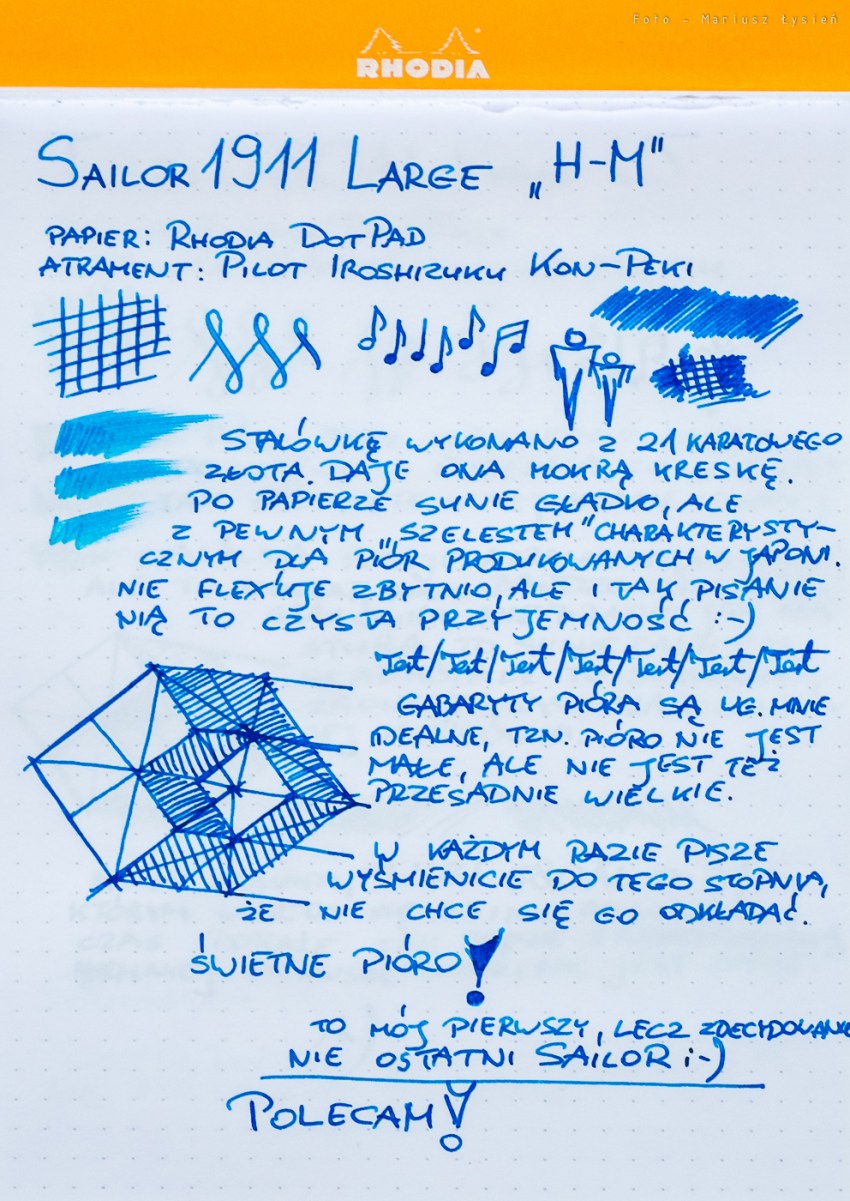 Foto - Mariusz Łysień
RHODIA
SAILOR 1911 LARGE „H-M"
PAPIER: RHODIA DOTPAD
ATRAMENT: PILOT IROSHIZUKU KON-PEKI
STALÓWKĘ WYKONANO Z 21 KARATOWEGO
ZŁOTA. DAJE ONA MOKRĄ KRESKĘ.
PO PAPIERZE SUNIE GŁADKO, ALE
Z PEWNYM „SZELESTEM" CHARAKTERYSTY-
CZNYM DLA PIÓR PRODUKOWANYCH W JAPONI.
NIE FLEXUJE ZBYTNIO, ALE I TAK PISANIE
NIĄ TO CZYSTA PRZYJEMNOŚĆ :-)
Test/Test/Test/Test/Test/Test/Test
GABARYTY PIÓRA SĄ UG. MNIE
IDEALNE, TZN. PIÓRO NIE JEST
MAŁE, ALE NIE JEST TEŻ
PRZESADNIE WIELKIE.
W KAŻDYM RAZIE PISZE
WYŚMIENICIE DO TEGO STOPNIA,
ŻE NIE CHCE SIĘ GO ODKŁADAĆ.
ŚWIETNE PIÓRO!
TO MÓJ PIERWSZY, LECZ ZDECYDOWANIE
NIE OSTATNI SAILOR ;-)
POLECAM!